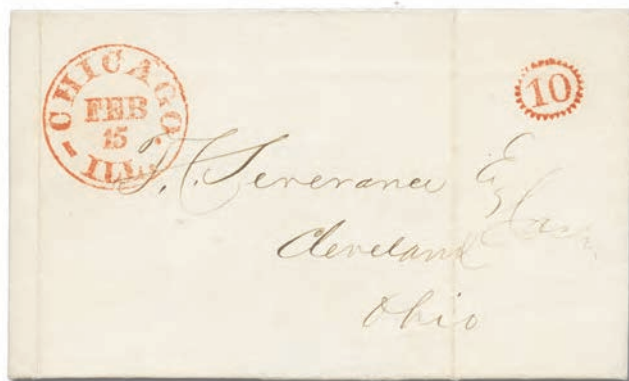 CHICAGO.
FEB
15
- ILL. -
10
T. C. Severance Esq
Cleveland
Ohio